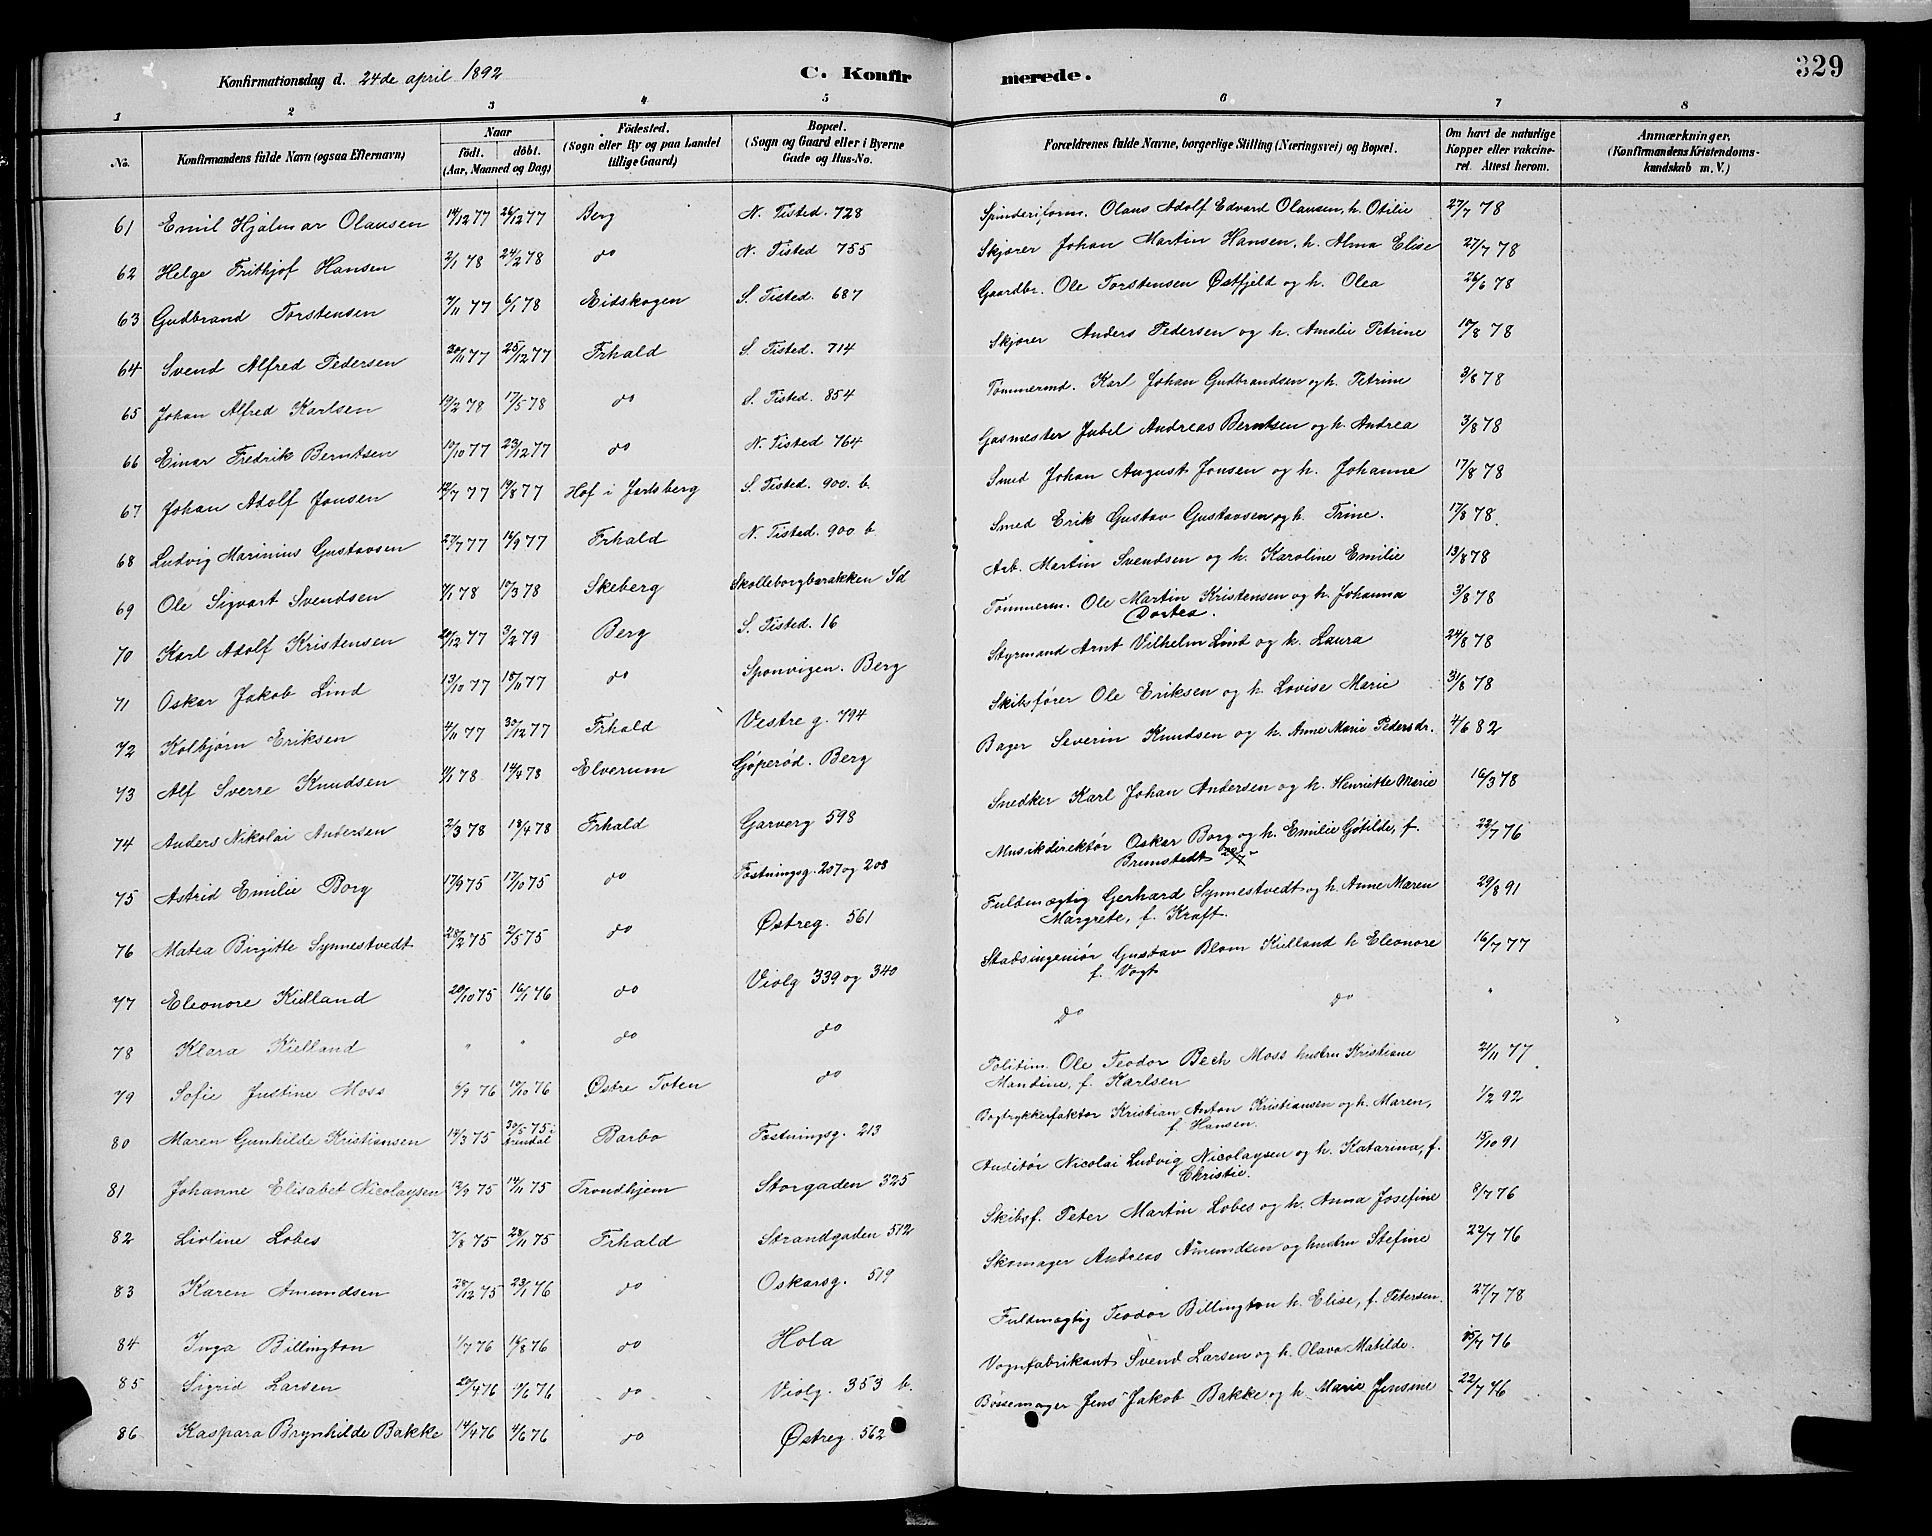 Konfirmationsdag d. 24de april 1892
C. Konfirmerede.
329
1 2 3 4 5 6 7 8
No. Konfirmandens fulde Navn (ogsaa Efternavn) Naar födt. döbt. (Aar, Maaned og Dag) Födested. (Sogn eller By og paa Landet tillige Gaard) Bopæl. (Sogn og Gaard eller i Byerne Gade og Hus-No. Forældrenes fulde Navne, borgerlige Stilling (Næringsvei) og Bopæl. Om havt de naturlige Kopper eller vakcineret. Attest herom. Anmærkninger. (Konfirmandens Kristendomskundskab m. V.)
61 Emil Hjalmar Olausen 14/12 77 26/12 77 Berg N. Tisted. 728 Spinderiform. Olaus Adolf Edvard Olausen, h. Otilie 27/7 78
62 Helge Frithjof Hansen 2/1 78 24/2 78 do N. Tisted 755 Skjører Johan Martin Hansen, h. Alma Elise 27/7 78
63 Gudbrand Torstensen 7/11 77 6/1 78 Eidskogen S. Tisted. 687 Gaardbr. Ole Torstensen Østfjeld og h. Olea 26/6 78
64 Svend Alfred Pedersen 30/11 77 25/12 77 Frhald S. Tisted. 714 Skjører Anders Pedersen og h. Amelie Petrine 10/8 78
65 Johan Alfred Karlsen 19/2 78 17/5 78 do S. Tisted. 854 Tømmermd. Karl Johan Gudbrandsen og h. Petrine 3/8 78
66 Einar Fredrik Berntsen 19/10 77 23/12 77 do N. Tisted 764 Gasmester Jubel Andreas Berntsen og h. Andrea 3/8 78
67 Johan Adolf Jonsen 12/7 77 19/8 77 Hof i Jarlsberg S. Tisted. 900. b. Smed Johan August Jonsen og h. Johanne 17/8 78
68 Ludvig Marinius Gustavsen 27/7 77 16/9 77 Frhald N. Tisted. 900 b. Smed Erik Gustav Gustavsen og h. Trine. 17/8 78.
69 Ole Sigvart Svendsen 7/1 78 17/3 78 Skeberg Skolleborgbarakken Id Arb. Martin Svendsen og h. Karoline Emilie 13/8 78
70 Karl Adolf Kristensen 20/12 77 3/2 79 Berg S. Tisted. 16 Tømmerm. Ole Martin Kristensen og h. Johanna 3/8 78
Dortea.
71 Oskar Jakob Lind 13/10 77 18/11 77 do Sponvigen. Berg Styrmand Arnt Vilhelm Lind og h. Laura 24/8 78
72 Kolbjørn Eriksen 4/11 77 30/12 77 Frhald Vestre g. 794 Skibsfører Ole Eriksen og h. Lovise Marie 31/8 78
73 Alf Sverre Knudsen 11/1 78 14/4 78 Elverum Gjøperød. Berg Bager Severin Knudsen og h. Anne Marie Pedersdr. 4/6 82
74 Anders Nikolai Andersen 2/3 78 18/4 78 Frhald Garverg 598 Snedker Karl Johan Andersen og h. Henriette Marie 16/3 78
75 Astrid Emilie Borg 17/9 75 17/10 75 do Fæstningsg. 207 og 208 Musikdirektør Oskar Borg og h. Emilie Gøtilde, f. 22/7 76
Brunstedt
76 Matea Birgitte Synnestvedt 28/2 75 2/5 75 do Østreg. 561 Fuldmægtig Gerhard Synnestvedt og h. Anne Maren 29/8 91
Margrete, f. Kraft.
77 Eleonore Kielland 20/10 75 16/1 76 do Violg 339 og 340 Stadsingeniør Gustav Blom Kielland h Eleonore 16/7 77
f. Vogt
78 Klara Kielland " " do do do do "
79 Sofie Justine Moss 6/9 76 19/10 76 Østre Toten do Politim. Ole Teodor Bech Moss hustru Kristiane 21/11 77
Mandine, f. Karlsen
80 Maren Gunhilde Kristiansen 14/3 75 30/5 75 i Arendal Barbo Fæstningsg. 213 Bogtrykkerfaktor Kristian Anton Kristiansen og h. Maren, 1/2 92
f. Hansen.
81 Johanne Elisabet Nicolaysen 12/9 75 14/11 75 Trondhjem Storgaden 325 Auditør Nicolai Ludvig Nicolaysen og h. Katarina, f. 15/10 91
Christie.
82 Livline Lobes 7/8 75 28/11 75 Frhald Strandgaden 512 Skibsf. Peter Martin Lobes og h. Anna Josefine 8/7 76
83 Karen Amundsen 28/12 75 23/1 76 do Oskarsg. 519 Skomager Andreas Amundsen og hustru Stefine 22/7 76
84 Inga Billington 1/7 76 16/8 76 do Hola Fuldmægtig Teodor Billington h. Elise, f. Petersen. 27/7 78
85 Sigrid Larsen 20/4 76 11/6 76 do Violg. 353 b. Vognfabrikant Svend Larsen og h. Olava Matilde. 15/7 76
86 Kaspara Brynhilde Bakke 14/4 76 4/6 76 do Østreg. 562 Bøssemager Jens Jakob Bakke og h. Marie Jensine 22/7 76